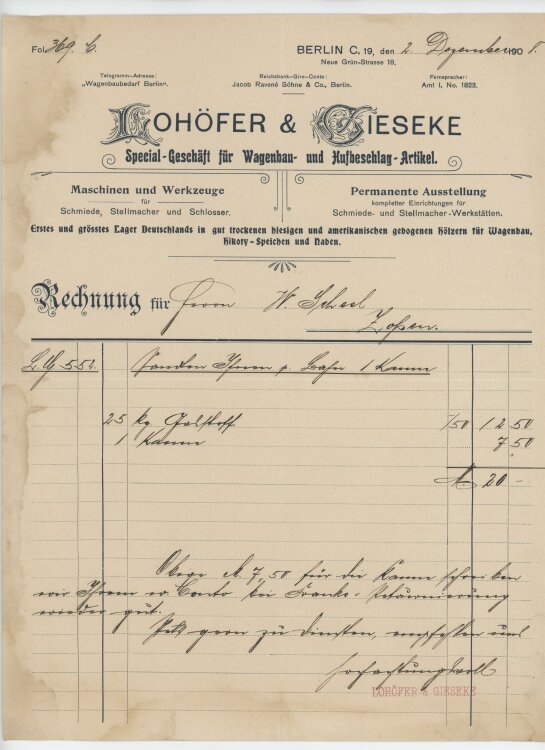 Fol. 369. C.
BERLIN C. 19, den 2. Dezember 1908.
Neue Grün-Strasse 18.
Telegramm-Adresse: Reichsbank-Giro-Conto: Fernsprecher:
„Wagenbaubedarf Berlin“. Jacob Ravené Söhne & Co., Berlin. Amt I, No. 1823.
LOHÖFER & GIESEKE
Special-Geschäft für Wagenbau- und Hufbeschlag-Artikel.
Maschinen und Werkzeuge
für
Schmiede, Stellmacher und Schlosser.
Permanente Ausstellung
kompletter Einrichtungen für
Schmiede- und Stellmacher-Werkstätten.
Erstes und grösstes Lager Deutschlands in gut trockenen hiesigen und amerikanischen gebogenen Hölzern für Wagenbau,
Hikory-Speichen und Naben.
Rechnung für Herrn W. Scheel
Zossen.
552 Sandten Ihnen p. Bahn 1 Kanne
25 kg 50 12 50
1 Kanne 7 50
M. 20 -
Obige M. 7,50 für die Kanne schreiben
wir Ihrem w. Conto bei Franko-Retournierung
wieder gut.
Stets gern zu Diensten, empfehlen uns
hochachtungsvoll
LOHÖFER & GIESEKE